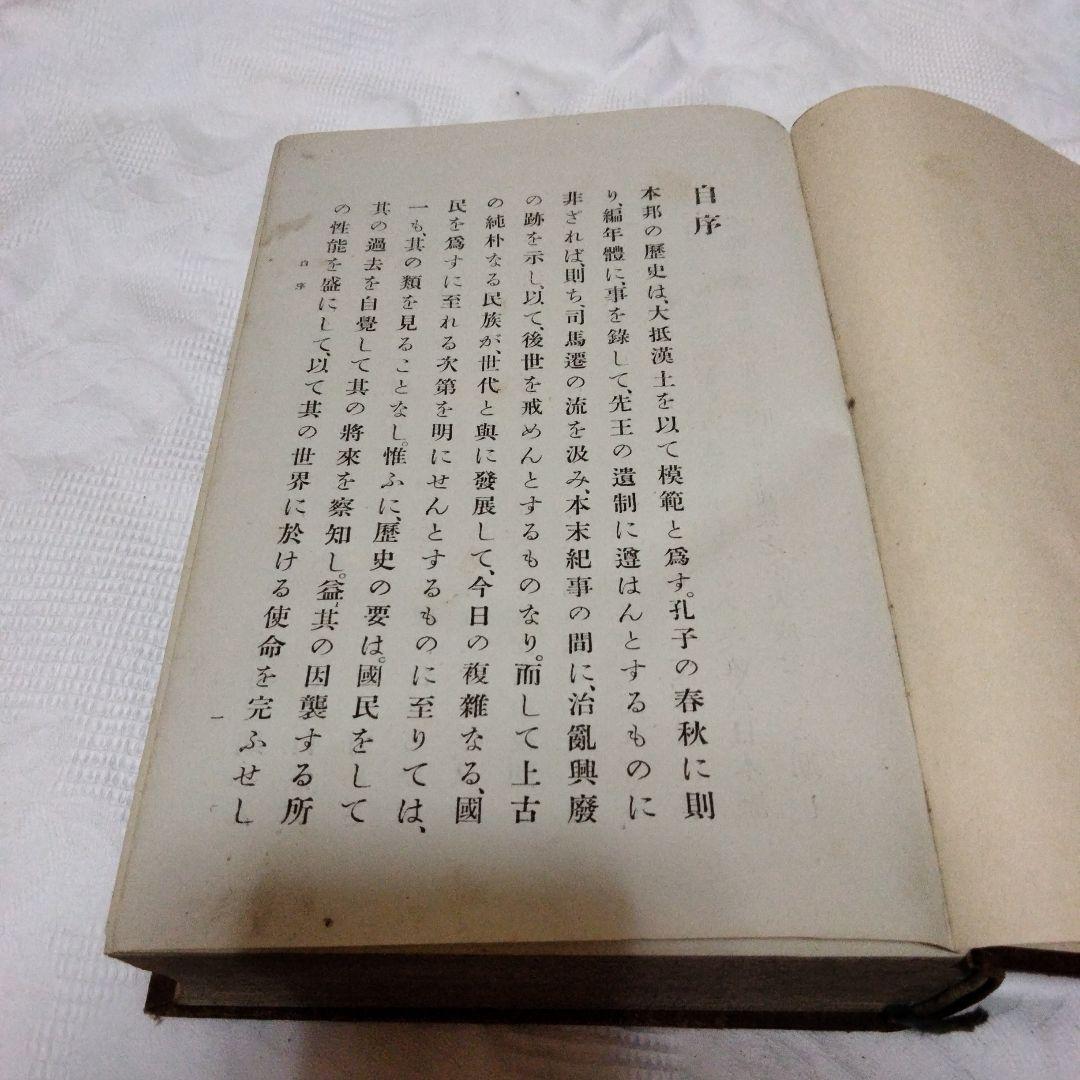 自序
本邦の歷史は、大抵漢土を以て模範と爲す。孔子の春秋に則
り、編年體に、事を錄して、先王の遺制に遵はんとするものに
非ざれば、則ち、司馬遷の流を汲み、本末紀事の間に、治亂興廢
の跡を示し、以て、後世を戒めんとするものなり。而して上古
の純朴なる民族が、世代と與に發展して、今日の複雜なる、國
民を爲すに至れる次第を明にせんとするものに至りては、
一も、其の類を見ることなし。惟ふに、歷史の要は。國民をして
其の過去を自覺して其の將來を察知し。益〻其の因襲する所
の性能を盛にして、以て其の世界に於ける使命を完ふせし
自序
一